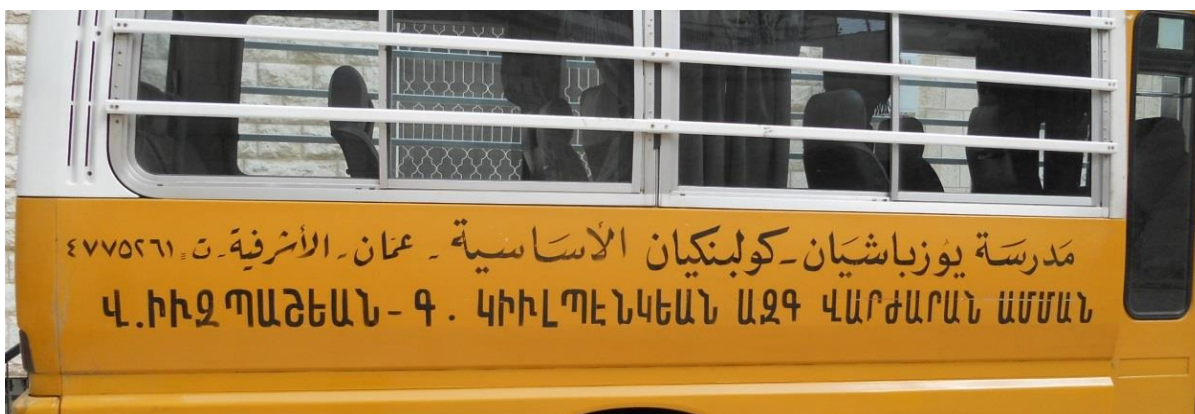 مدرسة يوزباشيان - كولبنكيان الأساسية - عمّان - الأشرفية - ت: ٤٧٧٥٢٦١
Վ.ԻՒԶՊԱՇԵԱՆ - Գ. ԿԻՒԼՊԷՆԿԵԱՆ ԱԶԳ ՎԱՐԺԱՐԱՆ ԱՄՄԱՆ